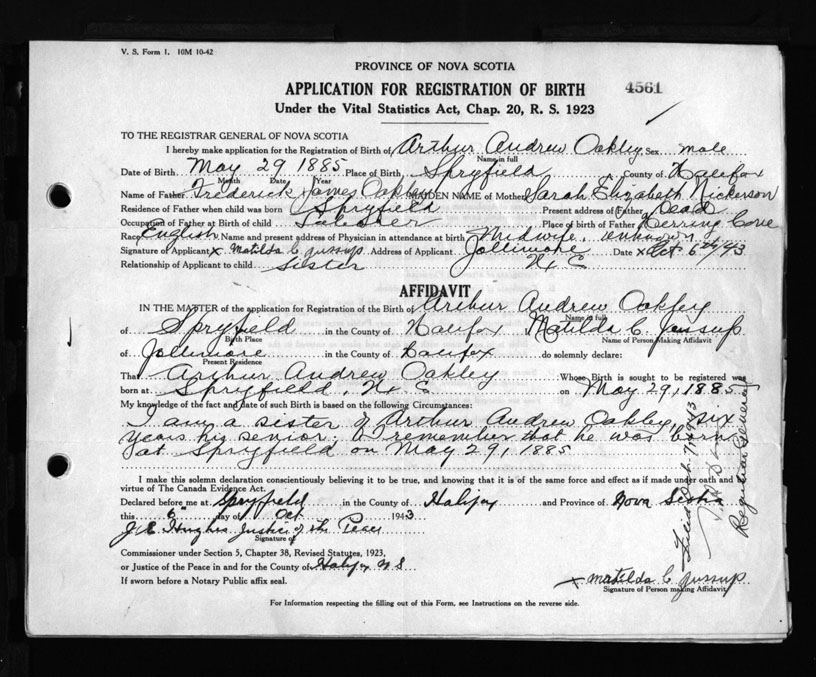 V. S. Form 1. 10M 10-42
PROVINCE OF NOVA SCOTIA
APPLICATION FOR REGISTRATION OF BIRTH 4561
Under the Vital Statistics Act, Chap. 20, R. S. 1923
TO THE REGISTRAR GENERAL OF NOVA SCOTIA
I hereby make application for the Registration of Birth of Arthur Andrew Oakley Sex male
Name in full
Date of Birth May 29 1885 Place of Birth Spryfield County of Halifax
Month Date Year
Name of Father Frederick James Oakley MAIDEN NAME of Mother Sarah Elizabeth Nickerson
Residence of Father when child was born Spryfield Present address of Father Dead
Occupation of Father at Birth of child Place of birth of Father Herring Cove
Race English Name and present address of Physician in attendance at birth Midwife, unknown
Signature of Applicant x Matilda C Jussup Address of Applicant Jollimore Date x Oct 6th/43
Relationship of Applicant to child Sister
AFFIDAVIT
IN THE MATTER of the application for Registration of the Birth of Arthur Andrew Oakley
Name in full
of Spryfield in the County of Halifax Matilda C. Jussup
Birth Place Name of Person Making Affidavit
of Jollimore in the County of Halifax do solemnly declare:
Present Residence
That Arthur Andrew Oakley Whose Birth is sought to be registered was
born at Spryfield, on May 29, 1885
My knowledge of the fact and date of such Birth is based on the following Circumstances:
I am a sister of Arthur Andrew Oakley, six
years his senior; I remember that he was born
at Spryfield on May 29, 1885
I make this solemn declaration conscientiously believing it to be true, and knowing that it is of the same force and effect as if made under oath and
virtue of The Canada Evidence Act.
Declared before me at Spryfield in the County of Halifax and Province of Nova Scotia
this 6 day of Oct 1943
J E Hughes Justice of the Peace
Signature of
Commissioner under Section 5, Chapter 38, Revised Statutes, 1923,
or Justice of the Peace in and for the County of Halifax N S
If sworn before a Notary Public affix seal.
x Matilda C Jussup
Signature of Person making Affidavit
For Information respecting the filling out of this Form, see Instructions on the reverse side.
Filed 1943
Registrar General